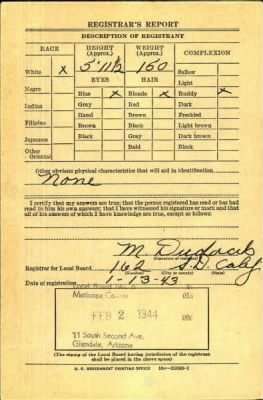 REGISTRAR'S REPORT
DESCRIPTION OF REGISTRANT
RACE HEIGHT (Approx.) WEIGHT (Approx.) COMPLEXION
White X 5' 11 1/2 160 Sallow
EYES HAIR Light
Negro Blue X Blonde X Ruddy X
Indian Gray Red Dark
Filipino Hazel Brown Freckled
Japanese Brown Black Light brown
Other Oriental Black Gray Dark brown
Bald Black
Other obvious physical characteristics that will aid in identification
None
I certify that my answers are true; that the person registered has read or has had
read to him his own answers; that I have witnessed his signature or mark and that
all of his answers of which I have knowledge are true, except as follows:
M.
(Signature of registrar)
Registrar for Local Board 162 S.D. Calif
(Number) (City or county) (State)
Date of registration 1-13-43
Local Board No.
Maricopa County 013
FEB 2 1944
11 South Second Ave,
Glendale, Arizona
(The stamp of the Local Board having jurisdiction of the registrant
shall be placed in the above space)
U. S. GOVERNMENT PRINTING OFFICE